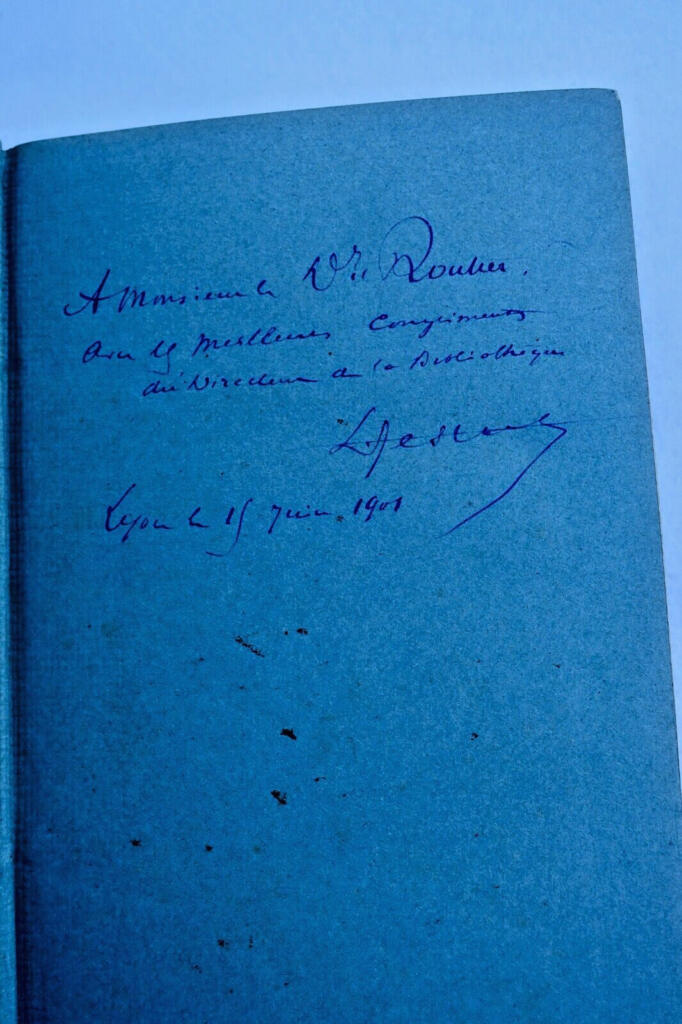 A Monsieur le Dr. Rouher.
Avec les meilleurs Compliments
du Directeur de la Bibliothèque
Lyon le 15 Juin 1901